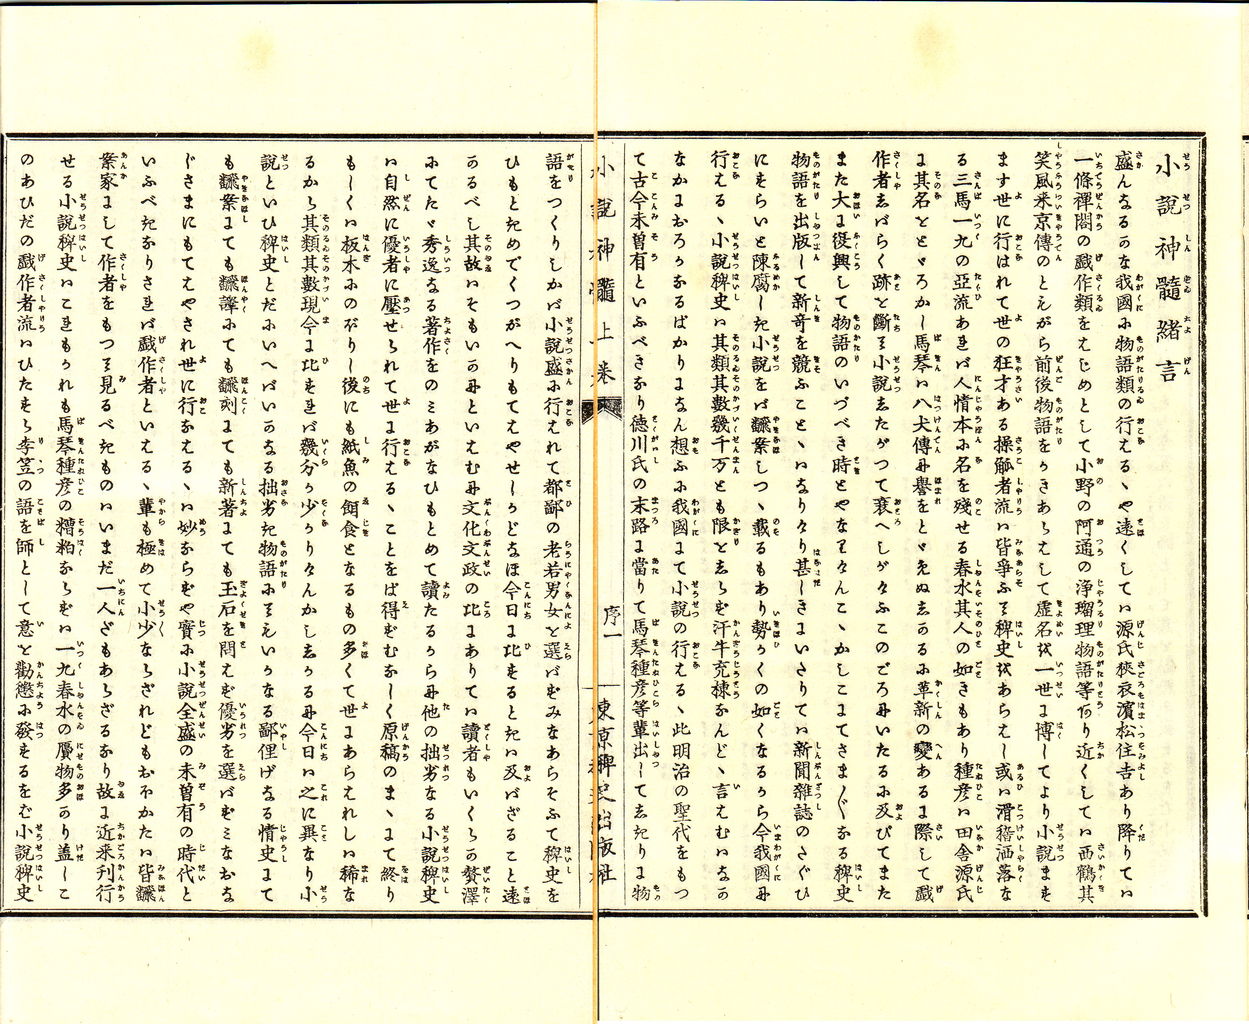 小說神髓緒言
盛んなるかな我國に物語類の行はるゝや遠くしては源氏狹衣濱松住吉あり降りては
一條禪閤の戯作類をはじめとして小野の阿通の淨瑠理物語等あり近くしては西鶴其
笑風来京傳のともがら前後物語をかきあらはして虚名を一世に博してより小說ます
ます世に行はれて世の狂才ある操觚者流は皆爭ふて稗史をあらはし或は滑稽洒落な
る三馬一九の亞流あれば人情本に名を殘せる春水其人の如きもあり種彦は田舎源氏
に其名をとゞろかし馬琴は八犬傳に譽をとゞめぬしかるに革新の變あるに際して戯
作者しばらく跡を斷て小說したがつて衰へしがけふこのごろにいたるに及びてまた
また大に復興して物語のいづべき時とやなりけんこゝかしこにてさま〴〵なる稗史
物語を出版して新奇を競ふことゝはなりけり甚しきにいたりては新聞雜誌のさぐひ
にすらいと陳腐しき小說をば飜案しつゝ載るもあり勢かくの如くなるから今我國に
行はるゝ小說稗史は其類其數幾千万とも限をしらず汗牛充棟なんどゝ言はむはなか
なかにおろかなるばかりになん想ふに我國にて小說の行はるゝ此明治の聖代をもつ
て古今未曽有といふべきなり徳川氏の末路に當りて馬琴種彦等輩出して志きりに物
小說神髓 上 序一 東京稗史出版社
語をつくりしかば小說盛に行はれて都鄙の老若男女を選ばずみなあらそふて稗史を
ひもときめでくつがへりもてはやせしかどなほ今日に比するときは及ばざること遠
かるべし其故はそもいかにといはむに文化文政の比にありては讀者もいくらか贅澤
にてたゞ秀逸なる著作をのみあがなひもとめて讀たるから他の拙劣なる小說稗史
は自然に優者に壓せられて世に行はるゝことをば得ずむなしく原稿のまゝにて終り
もしくは板木にのぼりし後にも紙魚の餌食となるもの多くて世にあらはれしは稀な
るから其類其數現今に比すれば幾分か少かりけんかししかるに今日は之に異なり小
說といひ稗史とだにいへばいかなる拙劣き物語にてもいかなる鄙俚げなる情史にて
も飜案にても飜譯にても飜刻にても新著にても玉石を問はず優劣を選ばずみなおな
じさまにもてはやされ世に行なはるゝは妙ならずや實に小說全盛の未曽有の時代と
いふべきなりされば戯作者といはるゝ輩も極めて小少ならざれどもおほかたは皆飜
案家にして作者をもつて見るべきものはいまだ一人だもあらざるなり故に近来刊行
せる小說稗史はこれもかれも馬琴種彦の糟粕ならずは一九春水の贋物多かり蓋しこ
のあひだの戯作者流はひたすら李笠の語を師として意を勸懲に發するをば小說稗史